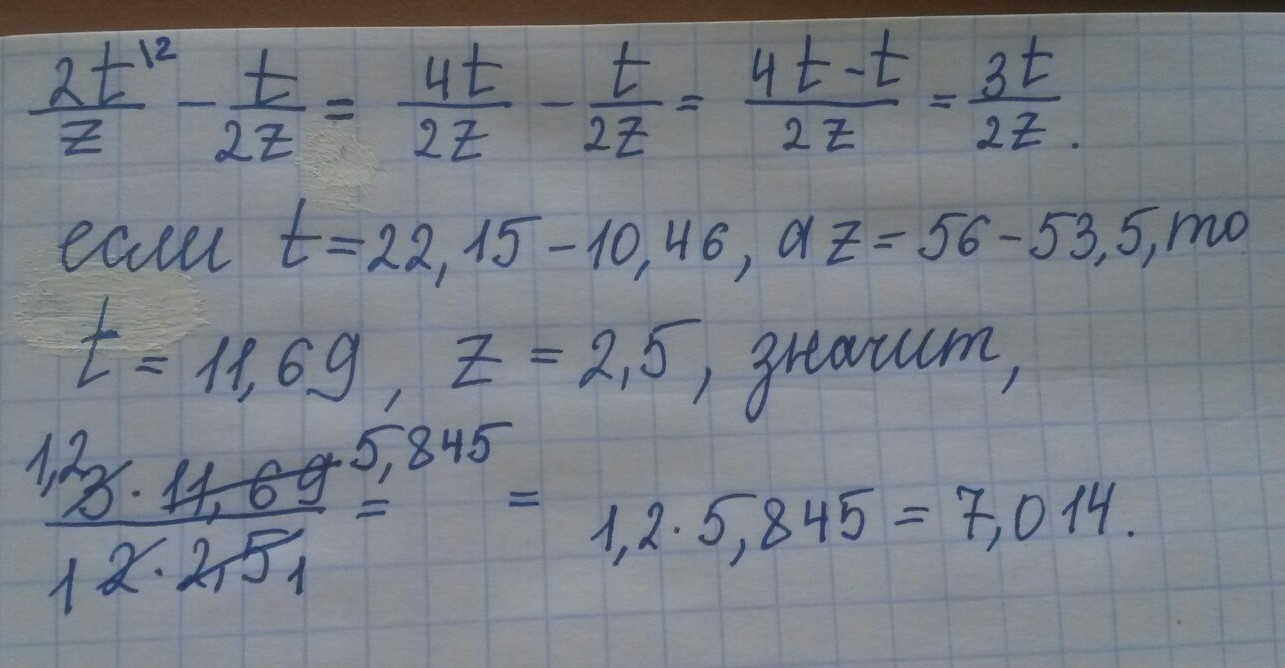 2t\2/z - t/2z = 4t/2z - t/2z = 4t-t/2z = 3t/2z.
если t=22,15-10,46, а z=56-53,5, то
t = 11,69, z = 2,5, значит,
1,2 3 · 11,69 5,845 / 1 2 · 2,5 1 = = 1,2 · 5,845 = 7,014.